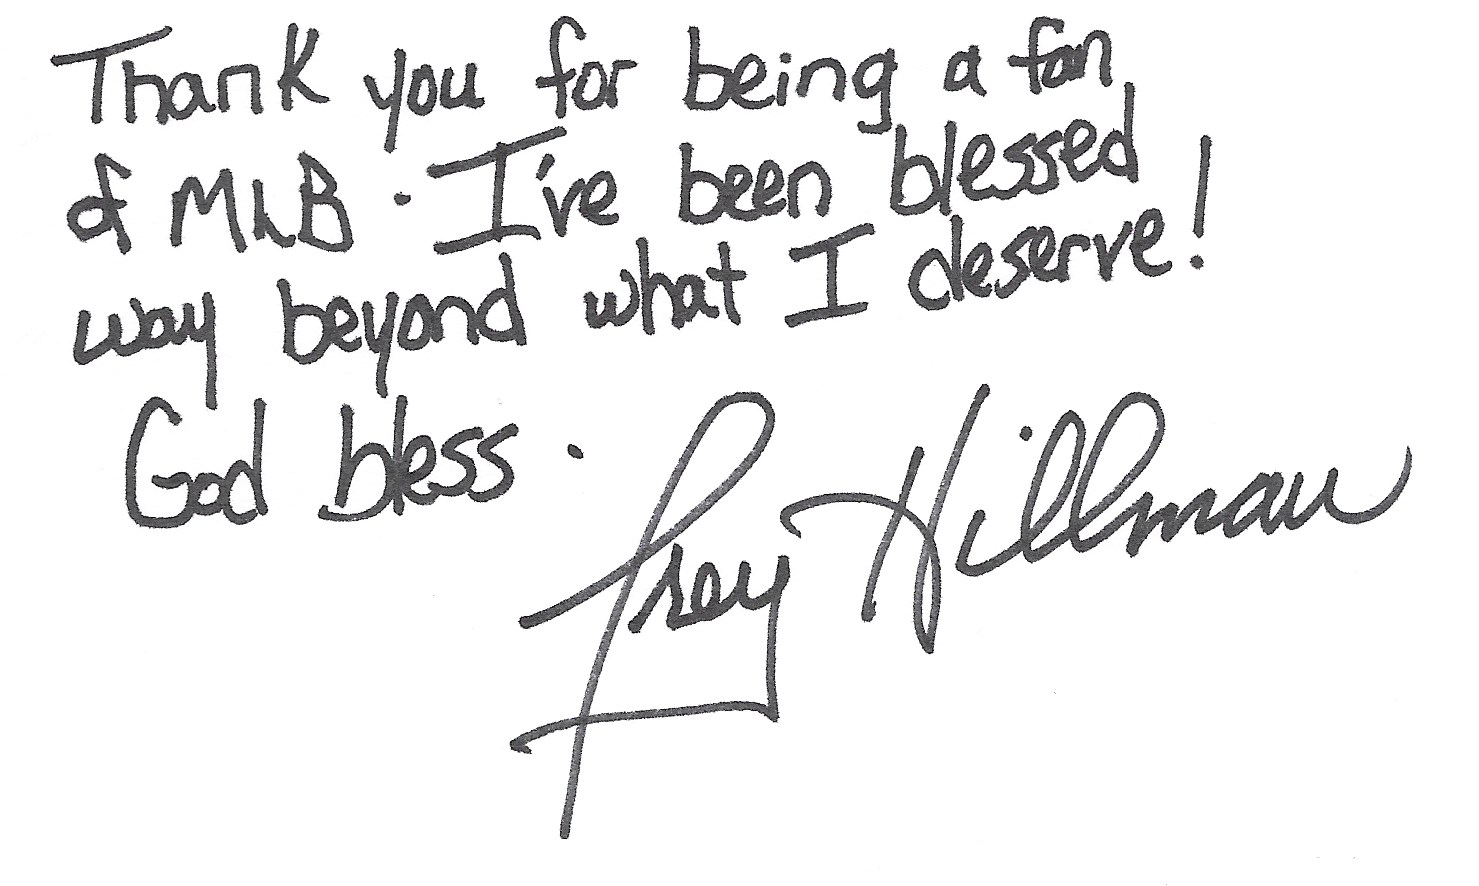 Thank you for being a fan
of MLB. I've been blessed
way beyond what I deserve!
God bless.
Trey Hillman